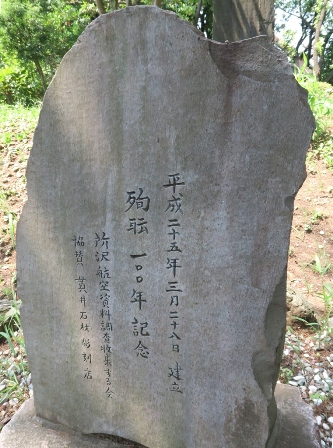 平成二十五年三月二十八日 建立
殉職 一〇〇年記念
所沢航空資料調査収集する会
協賛 貫井石材彫刻店